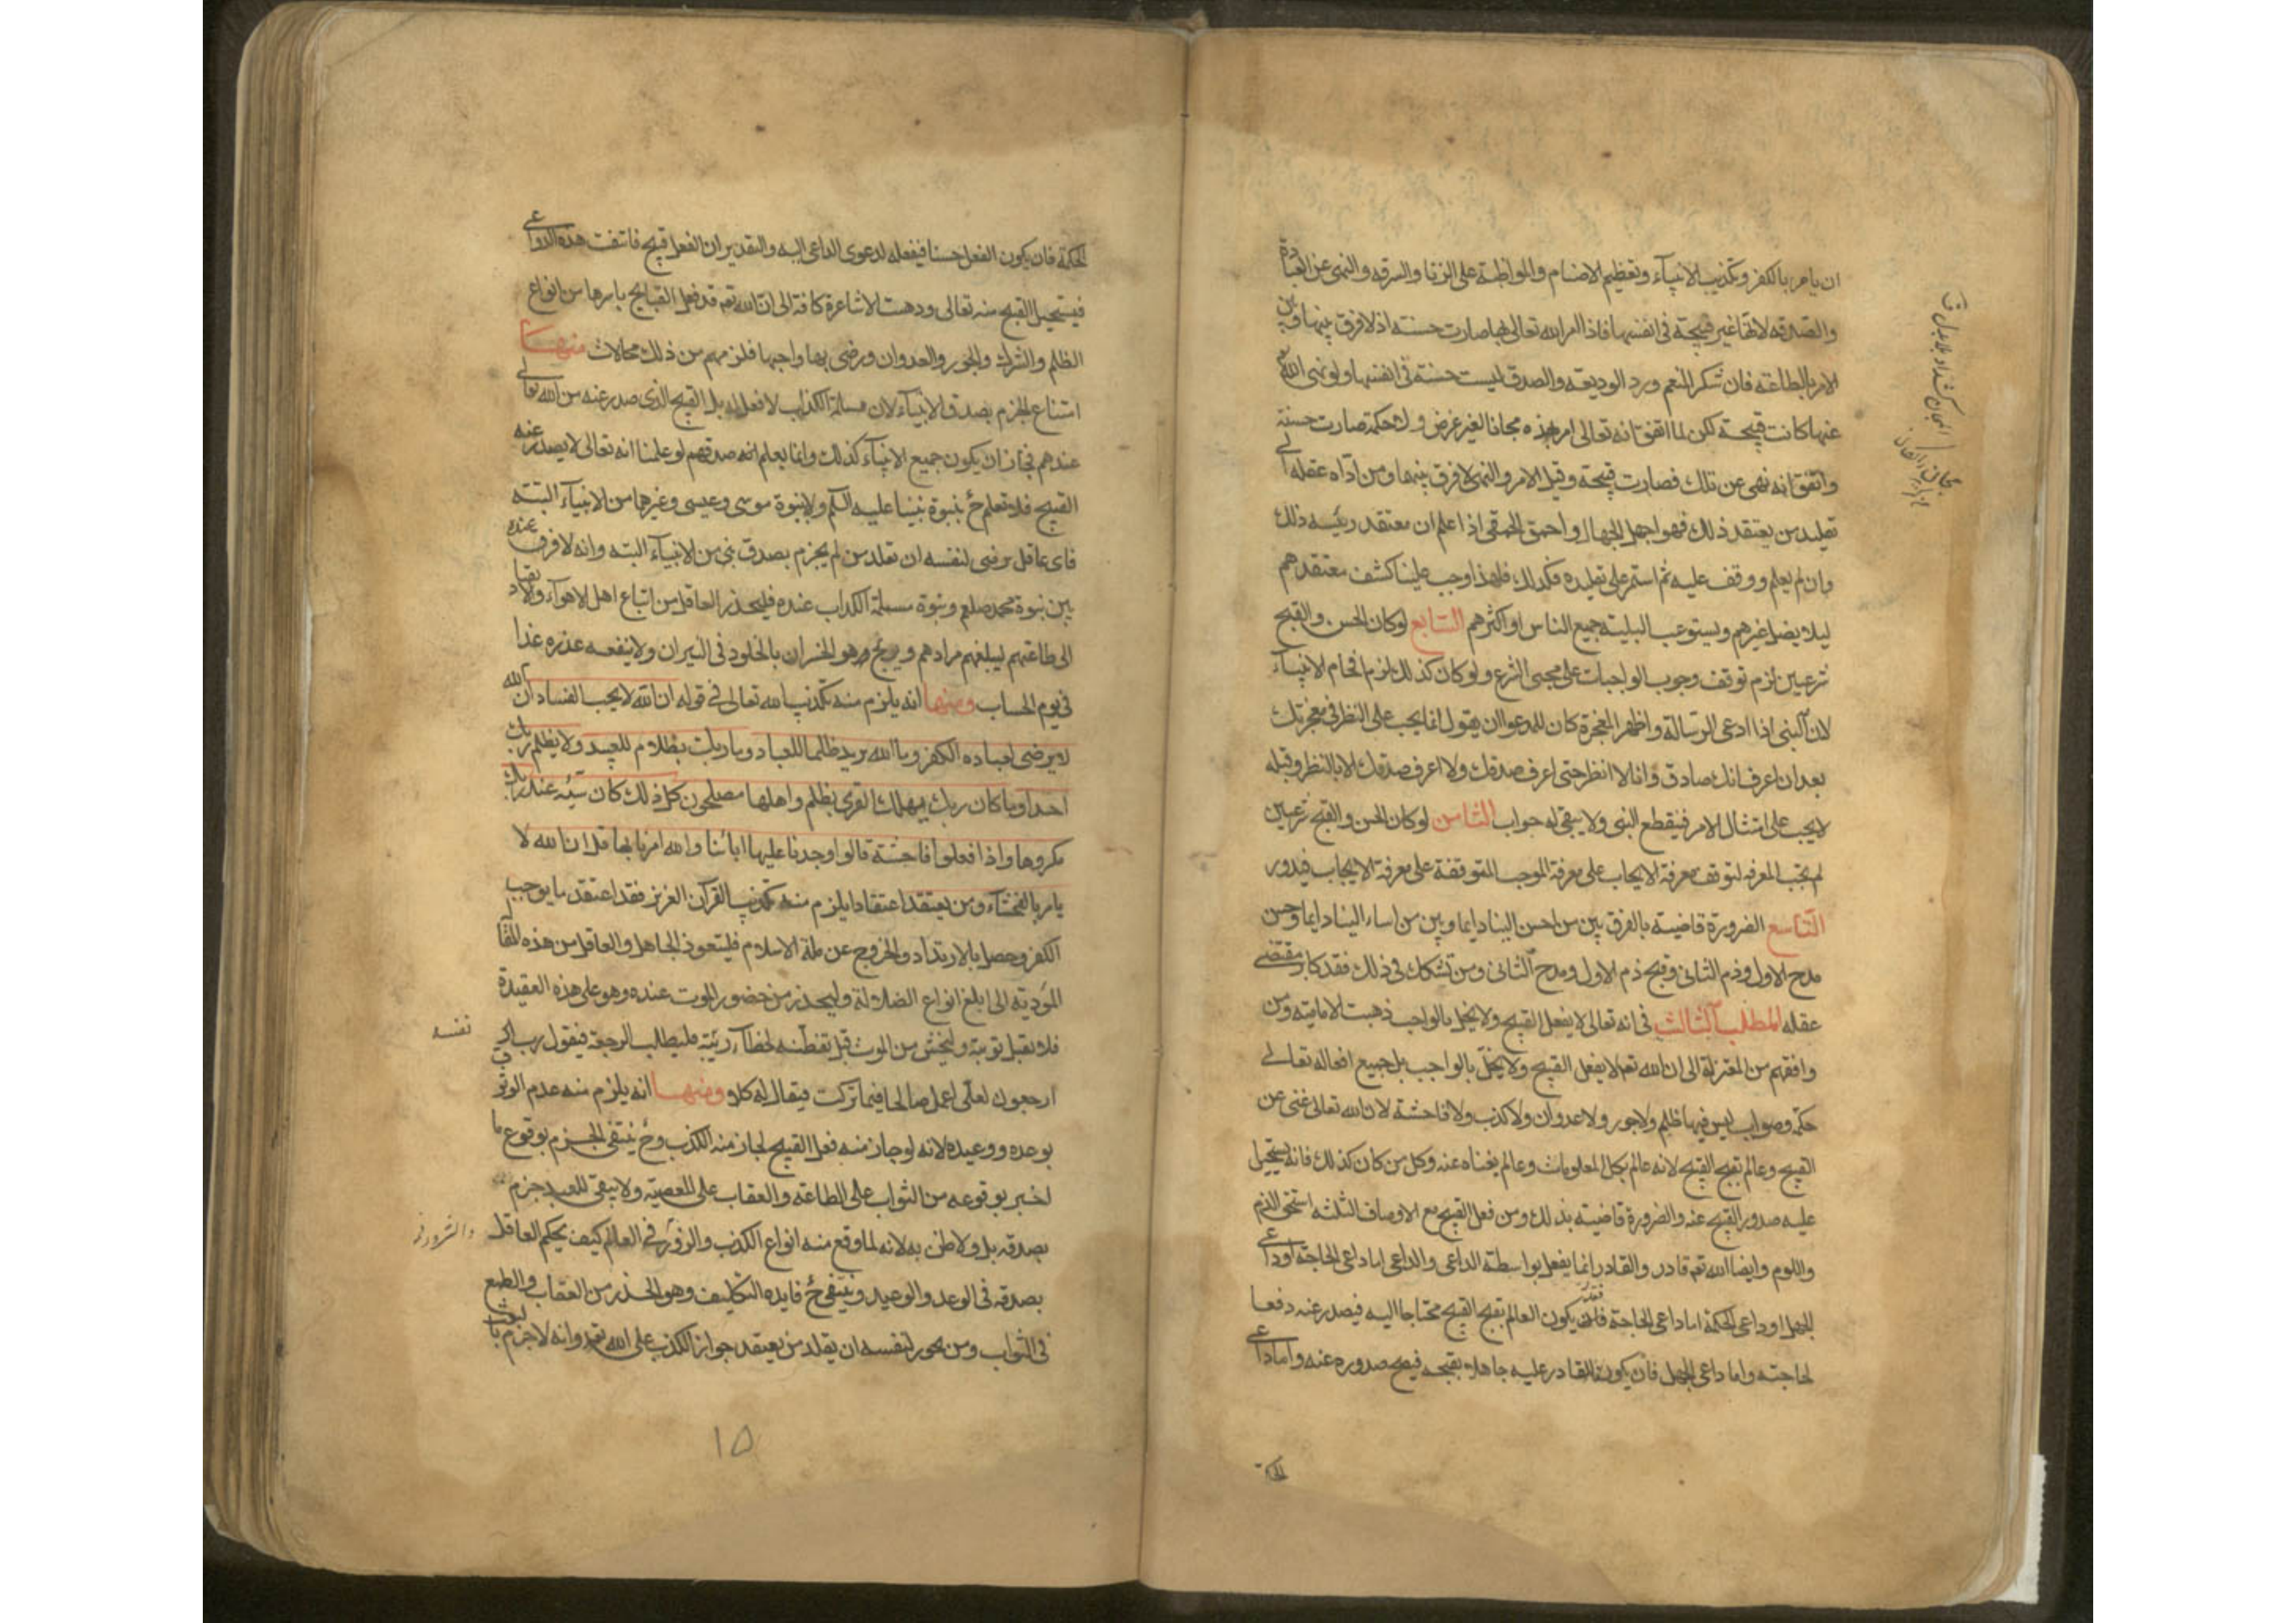 ان يامر بالكفر وتكذيب الانبيآء وتعظيم الاصنام والمواظبة على الزنا والسرقه والنهى عن العبادة
والصدقه لانها غير قبيحة فى انفسها فاذا امر الله تعالى بها صارت حسنة اذ لا فرق بينها وبين
الامر بالطاعة فان شكر المنعم ورد الوديعة والصدق ليست حسنة فى انفسها ولو نهى الله
عنها كانت قبيحة لكن لما اتفق انه تعالى امر بهذه مجانا لغير غرض ولا حكمة صارت حسنة
واتفق انه نهى عن تلك فصارت قبيحة وقبل الامر والنهى لا فرق بينها ومن اداه عقله الى
تقليد من يعتقد ذلك فهو اجهل الجهال واحمق الحمقى اذا علم ان معتقد رئيسه ذلك
وان لم يعلم ووقف عليه ثم استمر على تقليده فكذلك فلهذا وجب علينا كشف معتقدهم
ليلا يضل غيرهم ويستوعب البلية جميع الناس او اكثرهم السابع لو كان الحسن والقبح
شرعيين لزم توقف وجوب الواجبات على مجى الشرع ولو كان كذلك لزم افحام الانبيآء
لان النبى اذا ادعى الرسالة واظهر المعجزة كان للمدعو ان يقول انما يجب على النظر فى معجزتك
بعد ان اعرف انك صادق وانا لا انظر حتى اعرف صدقك ولا اعرف صدقك الا بالنظر وقبله
لا يجب على امتثال الامر فينقطع النبى ولا يبقى له جواب الثامن لو كان الحسن والقبح شرعيين
لم تجب المعرفه لتوقف معرفة الايجاب على معرفة الموجب المتوقفة على معرفة الايجاب فيدور
التاسع الضرورة قاضية بالفرق بين من احسن الينا دايما وبين من اساء الينا دايما وحسن
مدح الاول وذم الثانى وقبح ذم الاول ومدح الثانى ومن تشكك فى ذلك فقد كابر مقتضى
عقله المطلب الثالث فى انه تعالى لا يفعل القبيح ولا يخل بالواجب ذهبت الامامية ومن
وافقهم من المعتزلة الى ان الله تعه لا يفعل القبيح ولا يخل بالواجب بل جميع افعاله تعالى
حكمة وصواب ليس فيها ظلم ولا جور ولا عدوان ولا كذب ولا فاحشة لان الله تعالى غنى عن
القبيح وعالم بقبح القبيح لانه عالم بكل المعلومات وعالم بغناه عنه وكل من كان كذلك فانه يستحيل
عليه صدور القبيح عنه والضرورة قاضية بذلك ومن فعل القبيح مع الاوصاف الثلثه استحق الذم
واللوم وايضا الله تعه قادر والقادر انما يفعل بواسطة الداعى والداعى اما داعى الحاجة او داعى
الجهل او داعى الحكمة اما داعى الحاجة فقد يكون العالم بقبح القبيح محتاجا اليه فيصدر عنه دفعا
لحاجته واما داعى الجهل فان يكون القادر عليه جاهلا بقبحه فيصح صدوره عنه واما داعى
الحكمة
الحكمة فان يكون الفعل حسنا فيفعله لدعوى الداعى اليه والتقدير ان الفعل قبيح فانتفت هذه الدواعى
فيستحيل القبيح منه تعالى وذهبت الاشاعرة كافة الى ان الله تعه قد فعل القبايح باسرها من انواع
الظلم والشرك والجور والعدوان ورضى بها واحبها فلزمهم من ذلك محالات منها
امتناع الجزم بصدق الانبيآء لان مسيلمة الكذاب لا فعل له بل القبيح الذى صدر عنه من الله تعالى
عندهم فجاز ان يكون جميع الانبيآء كذلك وانما يعلم انه صدقهم لو علمنا انه تعالى لا يصدر عنه
القبيح فلا نعلم ح بنبوة نبينا عليه السلم ولا نبوة موسى وعيسى وغيرهما من الانبيآء البتة
فاى عاقل يرضى لنفسه ان تقلد من لم يجزم بصدق نبى من الانبيآء البته وانه لا فرق عنده
بين نبوة محمد صلعم ونبوة مسيلمة الكذاب عنده فليحذر العاقل من اتباع اهل الاهوآء والانقياد
الى طاعتهم ليبلغهم مرادهم ويربح هو الخسران بالخلود فى النيران ولا ينفعه عذره غدا
فى يوم الحساب ومنها انه يلزم منه تكذيب الله تعالى فى قوله ان الله لا يحب الفساد ان الله
لا يرضى لعباده الكفر وما الله يريد ظلما للعباد وما ربك بظلام للعبيد ولا يظلم ربك
احدا وما كان ربك ليهلك القرى بظلم واهلها مصلحون كل ذلك كان سيئه عند ربك
مكروها واذا فعلوا فاحشة قالوا وجدنا عليها ابائنا والله امرنا بها قل ان الله لا
يامر بالفحشاء ومن يعتقد اعتقادا يلزم منه تكذيب القرآن العزيز فقد اعتقد ما يوجب
الكفر وحصل بالارتداد والخروج عن ملة الاسلام فليتعوذ الجاهل والعاقل من هذه المقالة
المؤدية الى ابلغ انواع الضلالة وليحذر من حضور الموت عنده وهو على هذه العقيدة
فلا تقبل توبة وليخش من الموت قبل تفطنه لخطآء رئيته فليطلب الرجعة فيقول رب
نفسه
ارجعون لعلى اعمل صالحا فيما تركت فيقال له كلا ومنها انه يلزم منه عدم الوثوق
بوعده ووعيده لانه لو جاز منه فعل القبيح لجاز منه الكذب وح ينتفى الجزم بوقوع ما
اخبر بوقوعه من الثواب على الطاعة والعقاب على المعصية ولا يبقى للعبد جزم
بصدقه بل ولا ظن به لانه لما وقع منه انواع الكذب والزور فى العالم كيف يحكم العاقل
والشرور
بصدقه فى الوعد والوعيد وينتفى ح فايده التكليف وهو الحذر من العقاب والطمع
فى الثواب ومن يجور لنفسه ان يقلد من يعتقد جواز الكذب على الله تعه وانه لا جزم
١٥